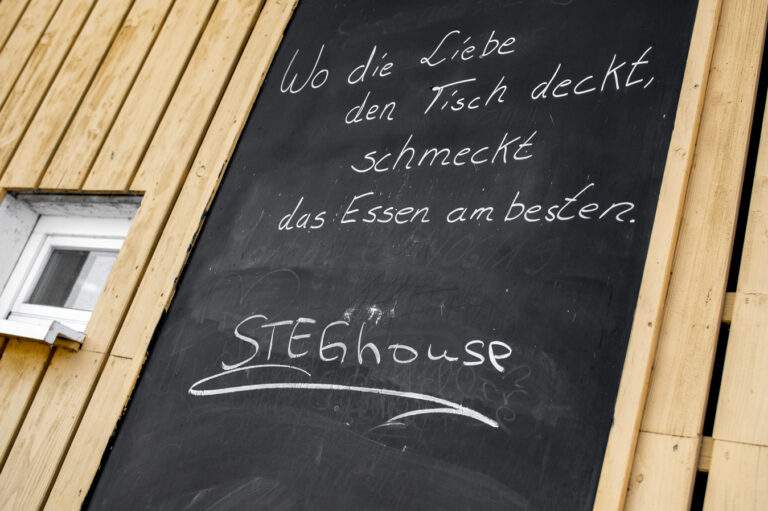 Wo die Liebe
den Tisch deckt,
schmeckt
das Essen am besten.
STEGhouse